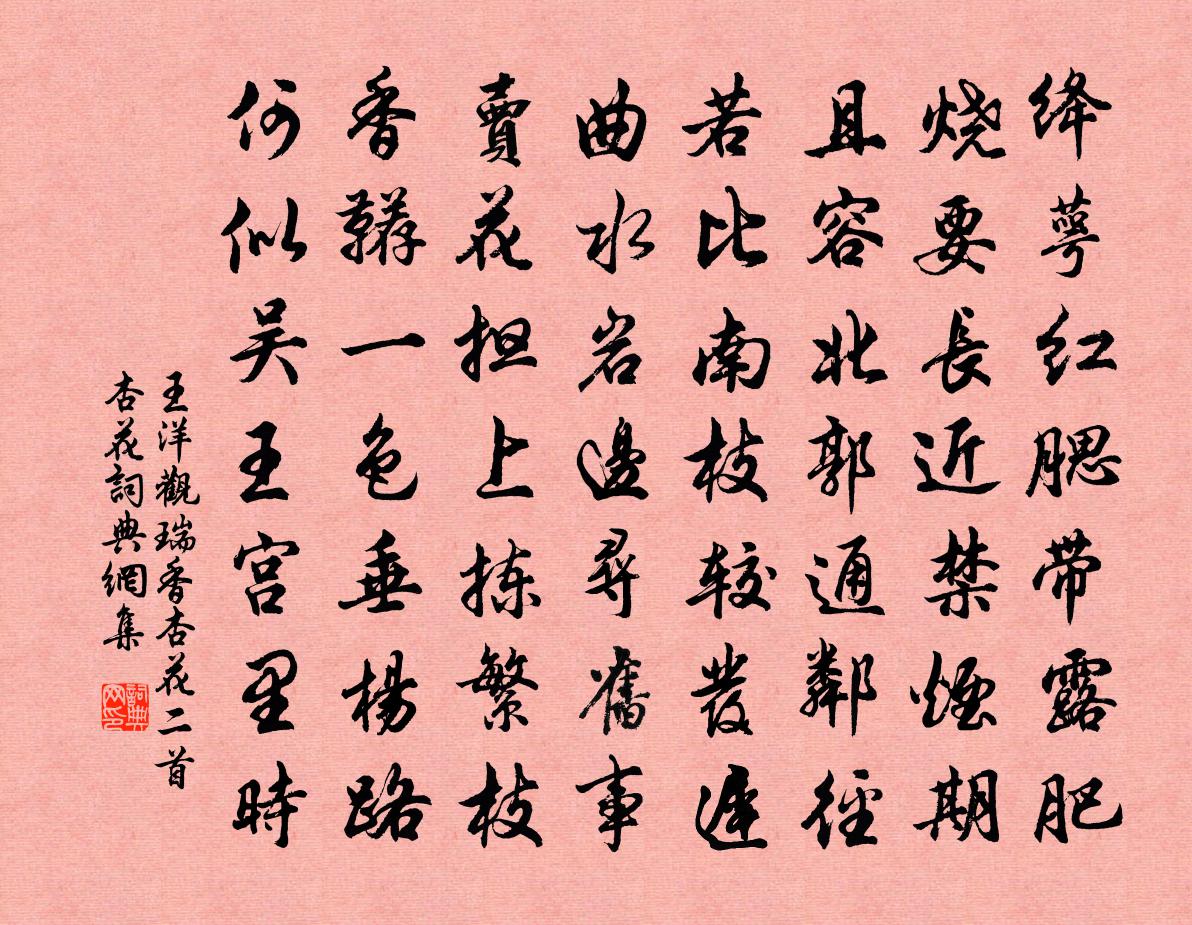 绛萼红腮带露肥
烧要長近禁煙期
且容北郭通鄰徑
若比南枝较發遲
曲水岩邊尋舊事
賣花担上拣繁枝
香韉一色垂楊路
何似吴王宫里時
王洋觀瑞香杏花二首
杏花詞典網集
詞典网印